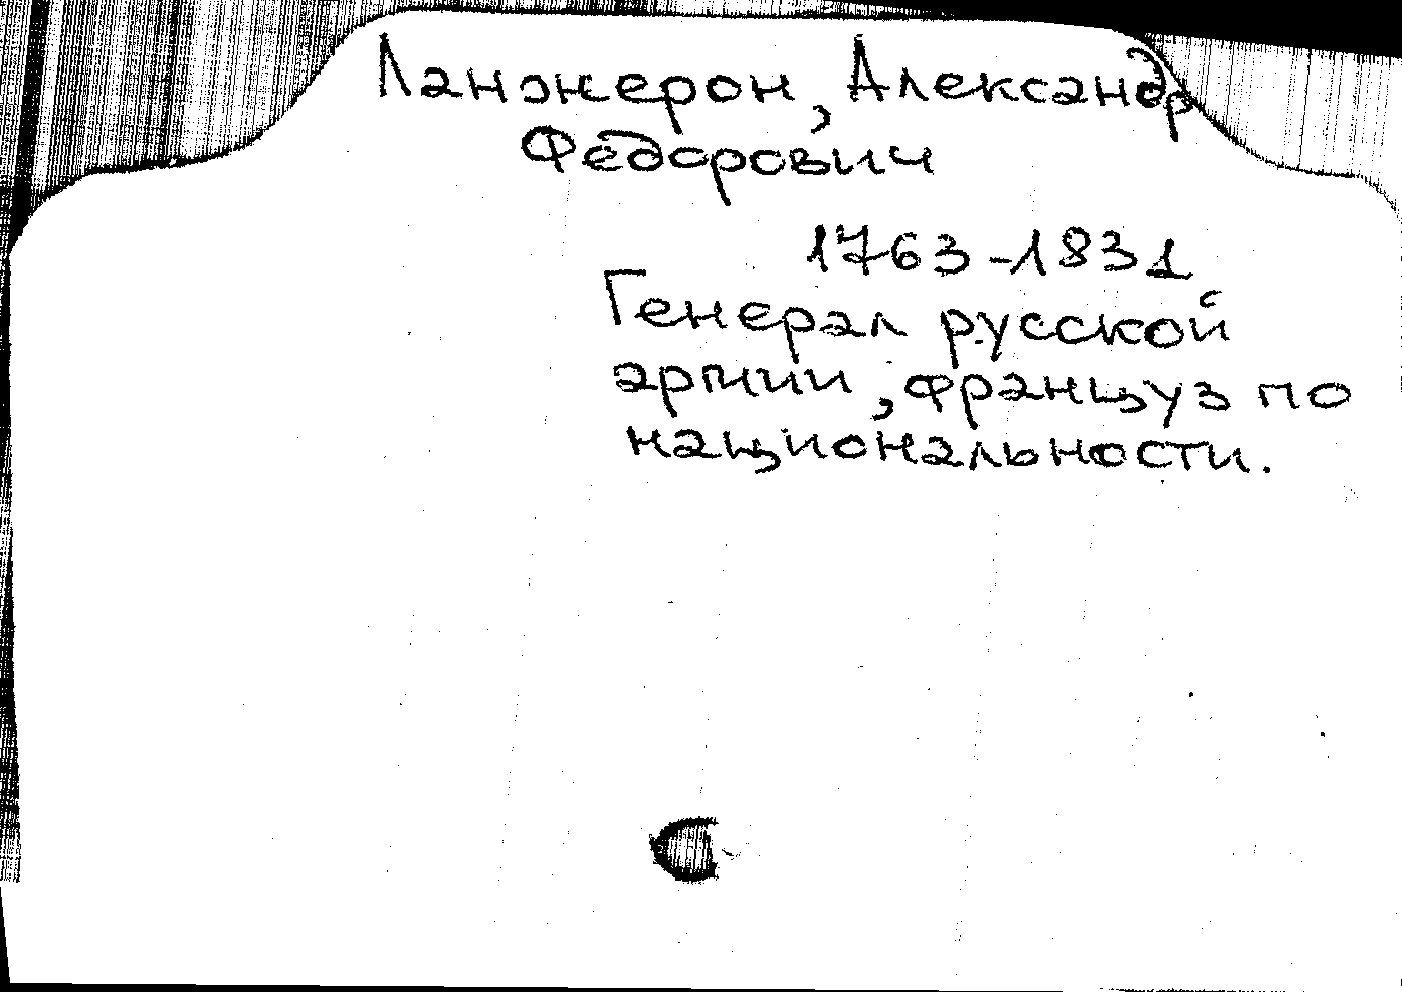 Ланжерон, Александр
Федорович
1763-1831
Генерал русской
армии, француз по
национальности.